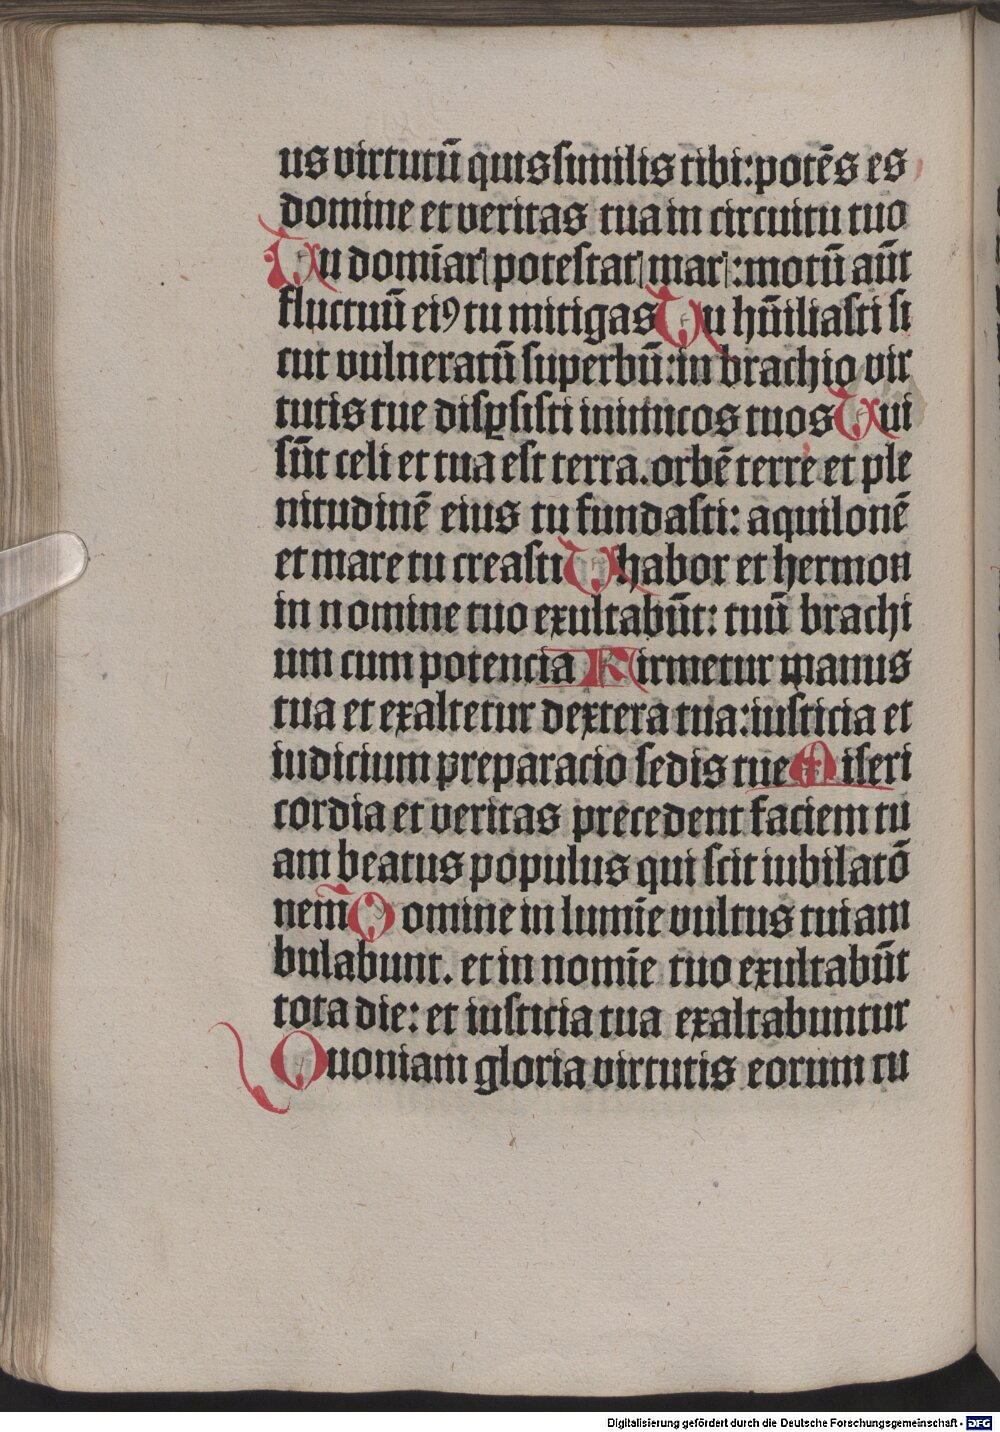 us virtutū quis similis tibi: potēs es
domine et veritas tua in circuitu tuo
Tu domīar potestat mar: motū aūt
fluctuū eiꝯ tu mitigas Tu hūiliasti si
cut vulneratū superbū: in brachio vir
tutis tue disꝑsisti inimicos tuos Tui
sūt celi et tua est terra. orbē terre et ple
nitudinē eius tu fundasti: aquilonē
et mare tu creasti Thabor et hermon
in nomine tuo exultabūt: tuū brachi
um cum potencia Firmetur manus
tua et exaltetur dextera tua: iusticia et
iudicium preparacio sedis tue Miseri
cordia et veritas precedent faciem tu
am beatus populus qui scit iubilatō
nem̄ Domine in lumīe vultus tui am
bulabunt. et in nomīe tuo exultabūt
tota die: et iusticia tua exaltabuntur
Quoniam gloria virtutis eorum tu
Digitalisierung gefördert durch die Deutsche Forschungsgemeinschaft - DFG